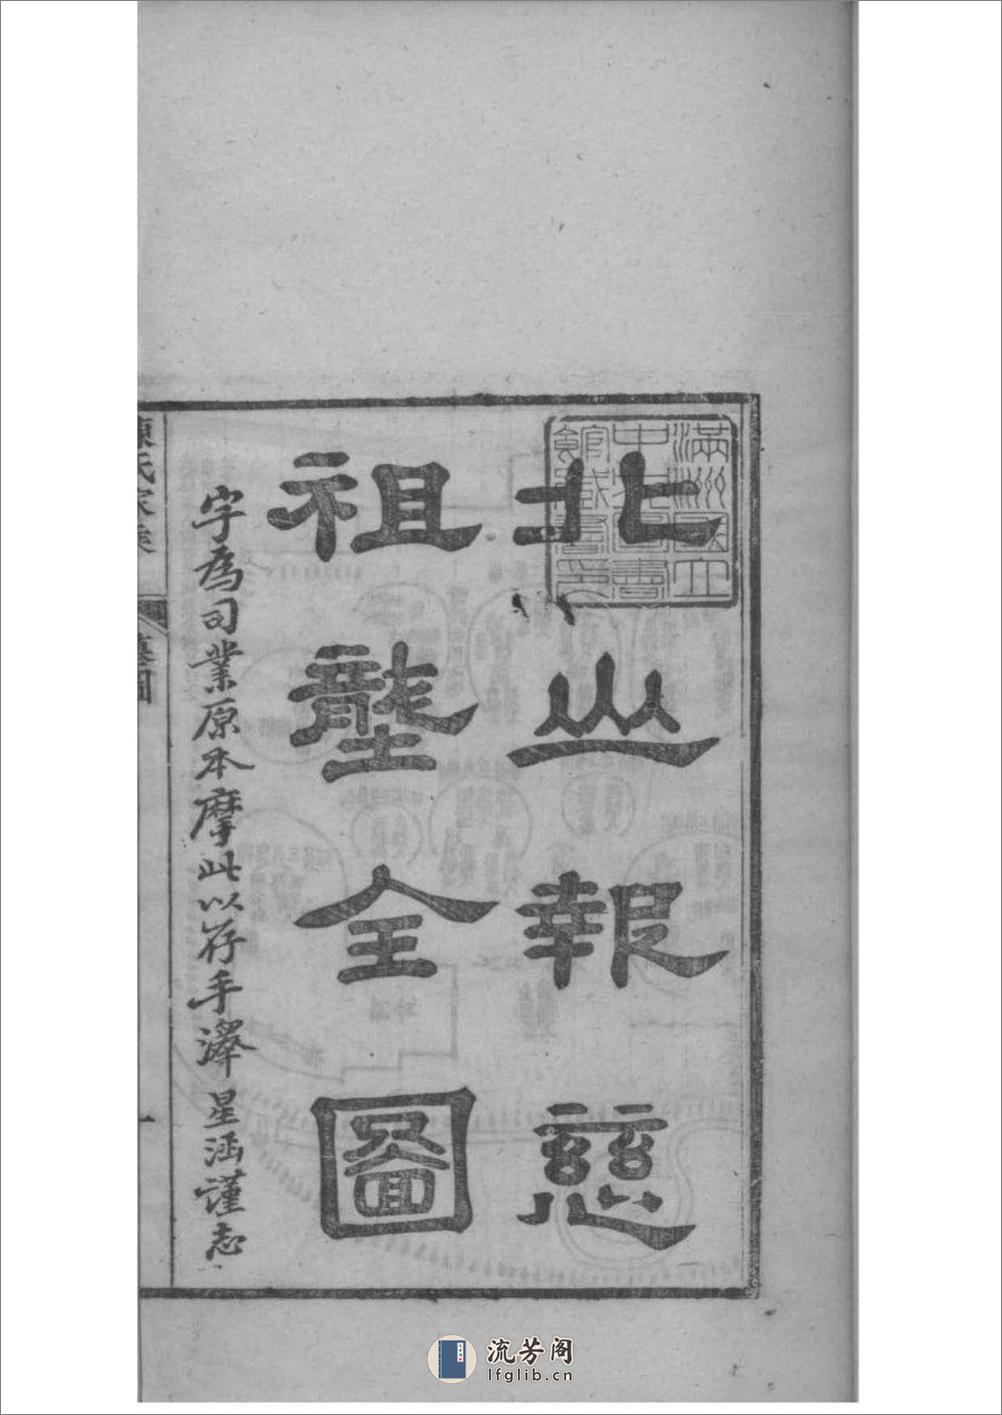 滿洲國立
中央圖書
館藏書印
北山報慈
祖壟全圖
字為司業原本摩此以存手澤星涵謹志
陳氏家乘
墓圖
一
流芳阁
lfglib.cn